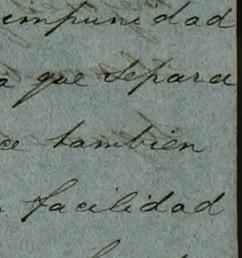 impunidad
a que separa
ce tambien
facilidad